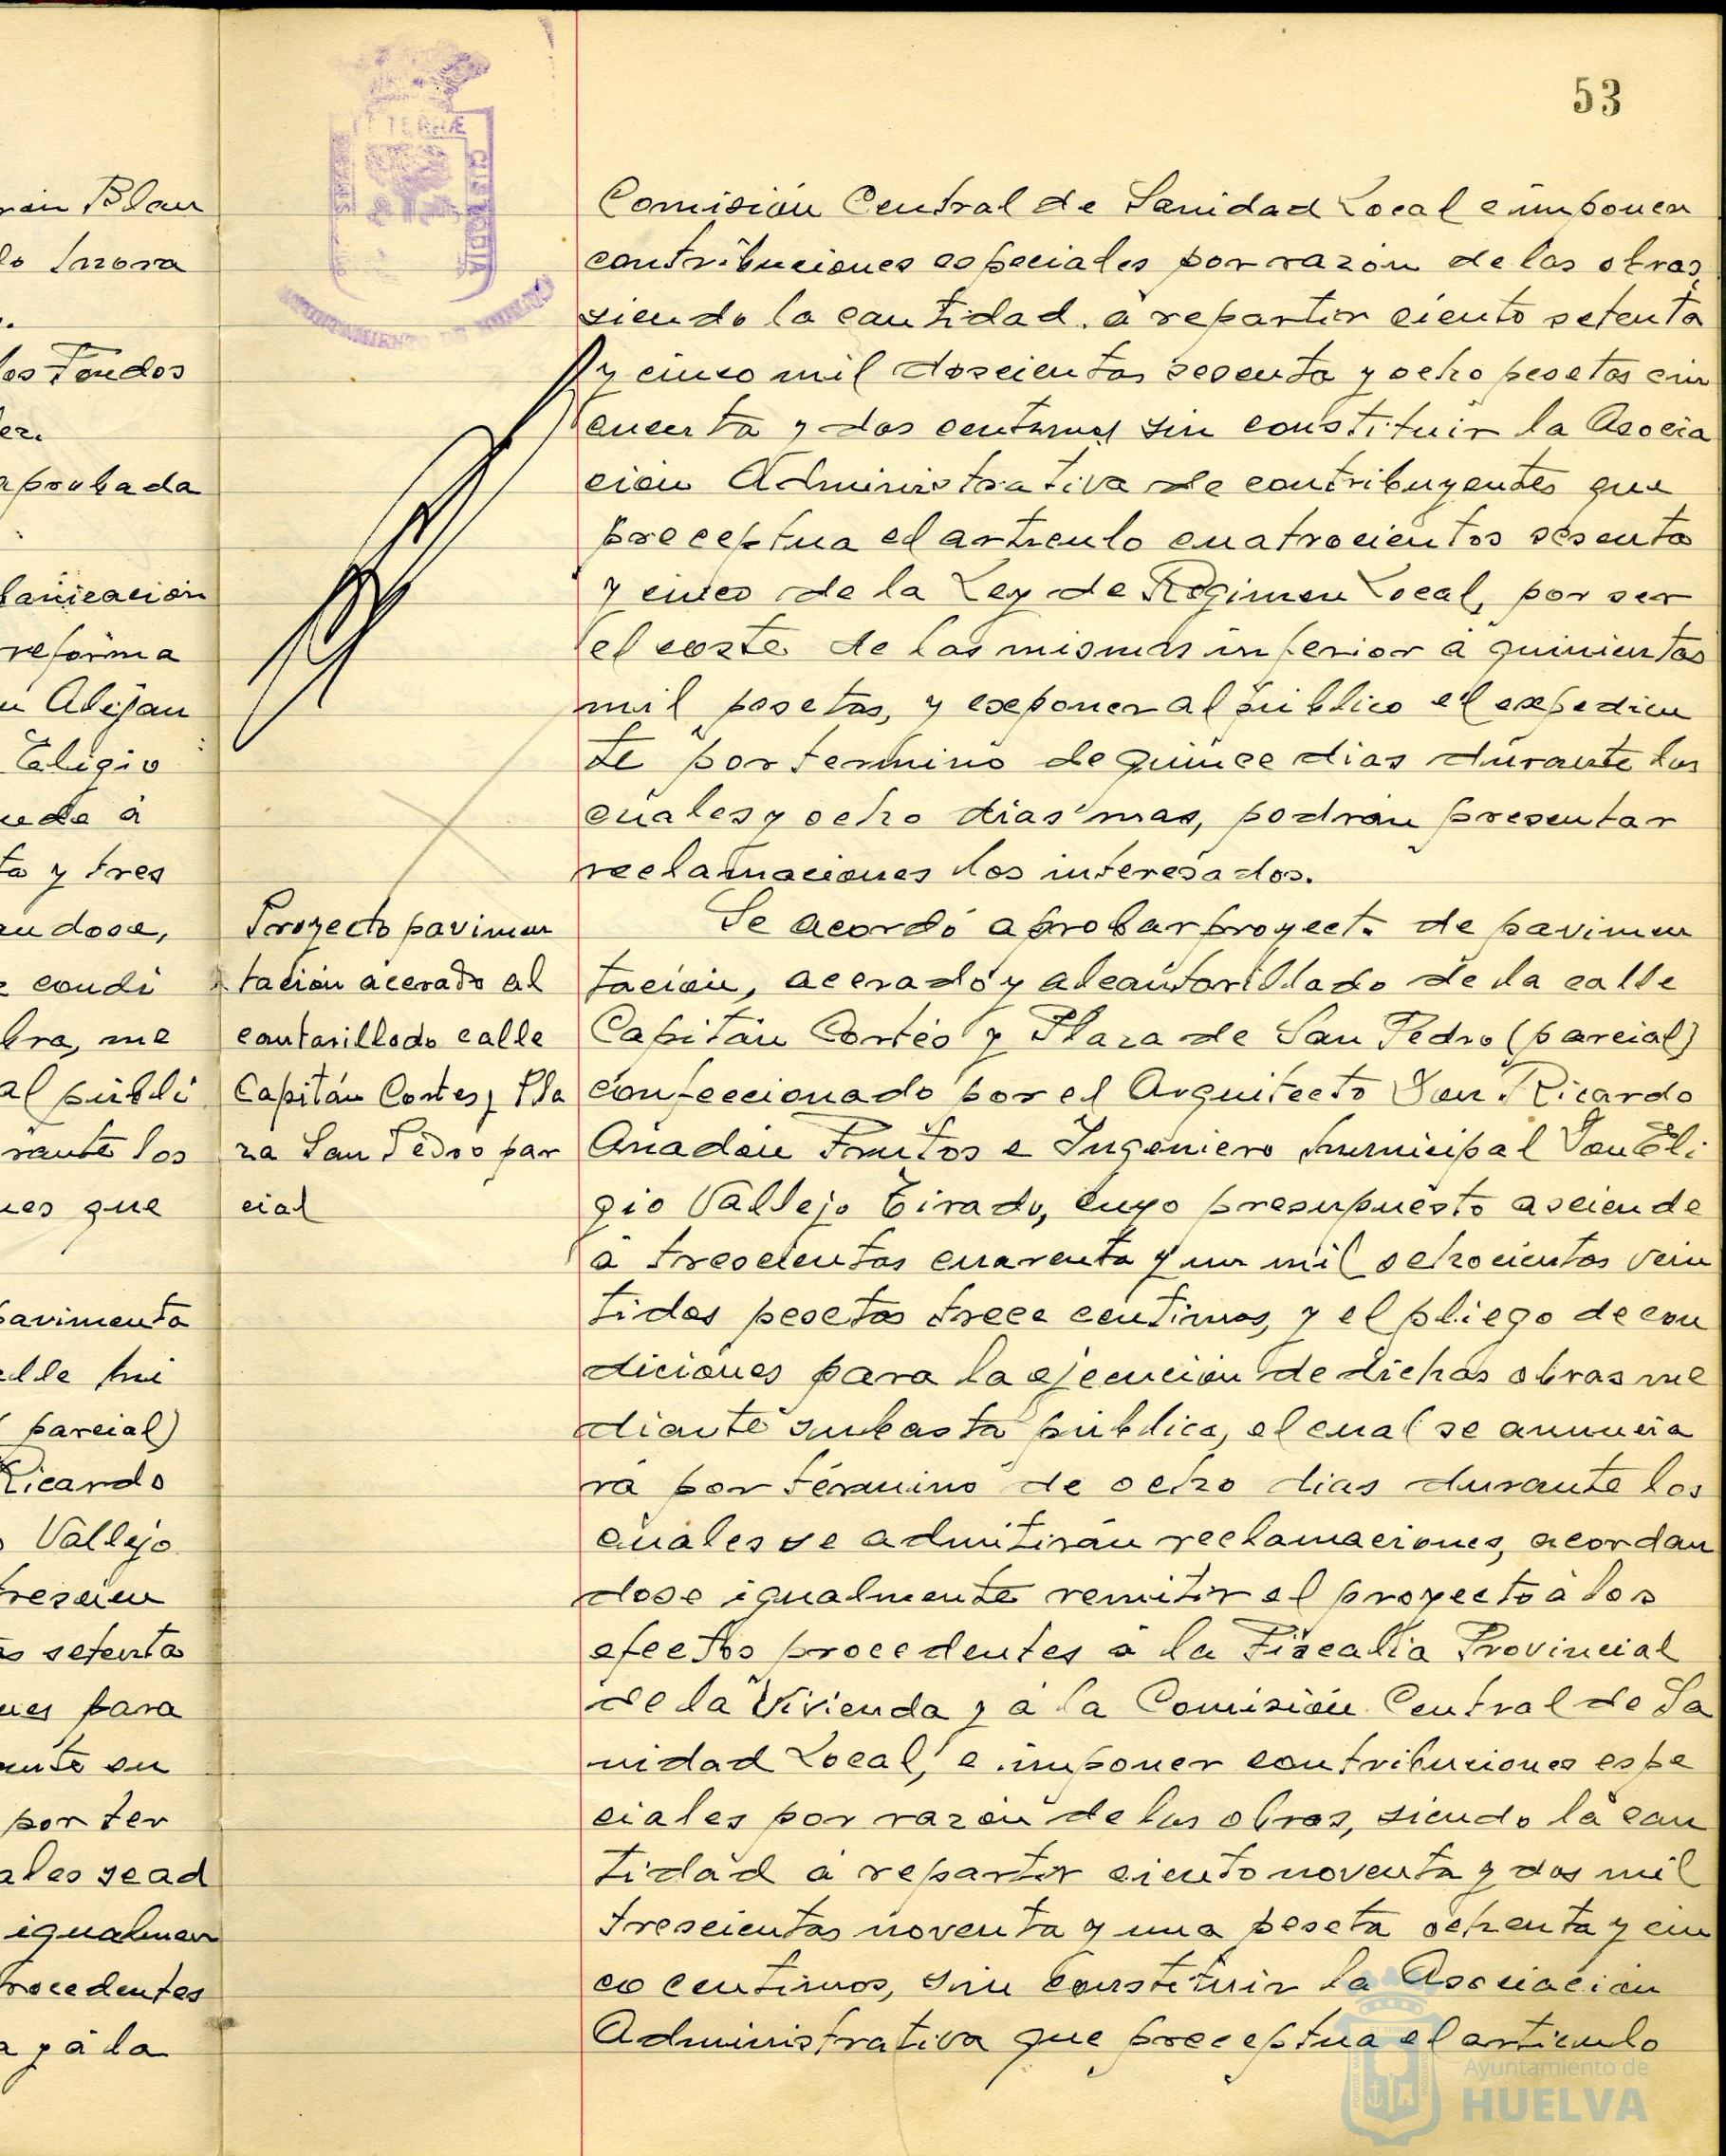 53
ran Blan
lo Mora
los Fondos
er.
aprobada
banización
reforma
n Alejan
Eligio
uda á
ta y tres
andose,
e condi
bra, me
al públi
rante los
nes que
pavimenta
alle
parcial)
Ricardo
Vallejo
trescien
as setenta
nes para
ante su
por ter
ales se ad
igualmen
rocedentes
a y á la
TERRÆ
CUSTODIA
AYUNTAMIENTO DE HUELVA
Comisión Central de Sanidad Local e imponer
contribuciones especiales por razón de las obras,
siendo la cantidad a repartir ciento setenta
y cinco mil doscientas sesenta y ocho pesetas cin
cuenta y dos centimos sin constituir la Asocia
cion Administrativa de contribuyentes que
preceptua el articulo cuatrocientos sesenta
y cinco de la Ley de Régimen Local, por ser
el coste de las mismas inferior a quinientas
mil pesetas, y exponer al público el expedien
te por termino de quince dias durante los
cuales y ocho dias mas, podran presentar
reclamaciones los interesados.
Proyecto pavimen
tación acerado al
cantarillado calle
Capitán Cortes y Pla
za San Pedro par
cial
Se acordó aprobar proyecto de pavimen
tación, acerado y alcantarillado de la calle
Capitán Cortés y Plaza de San Pedro (parcial)
confeccionado por el Arquitecto Don Ricardo
Anadón Frutos e Ingeniero Municipal Don Eli
gio Vallejo Tirado, cuyo presupuesto asciende
a trescientas cuarenta y un mil ochocientas vein
tidos pesetas trece centimos, y el pliego de con
diciones para la ejecución de dichas obras me
diante subasta pública, el cual se anuncia
rá por término de ocho dias durante los
cuales se admitirán reclamaciones, acordan
dose igualmente remitir el proyecto a los
efectos procedentes a la Fiscalía Provincial
de la Vivienda y a la Comisión Central de Sa
nidad Local, e imponer contribuciones espe
ciales por razón de las obras, siendo la can
tidad a repartir ciento noventa y dos mil
trescientas noventa y una peseta ochenta y cin
co centimos, sin constituir la Asociación
Administrativa que preceptua el articulo
Ayuntamiento de
HUELVA